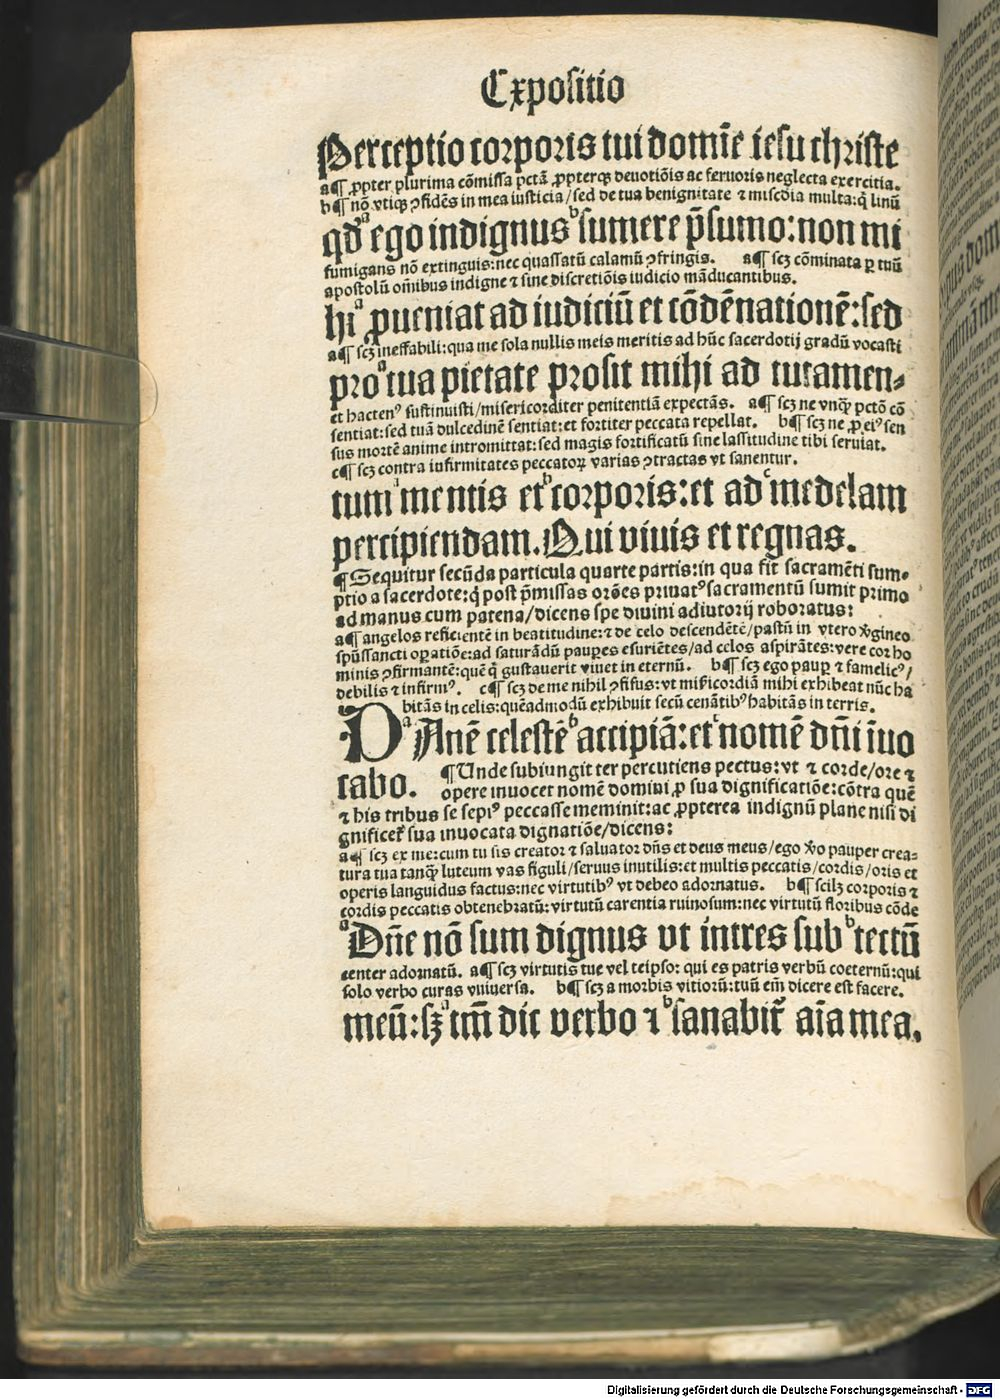 Expositio
Perceptio corporis tui domīe iesu christe
a¶ ꝓpter plurima cōmissa pctā ꝓpterqꝫ deuotiōis ac feruoris neglecta exercitia.
b¶ nō vtiqꝫ ꝯfidēs in mea iusticia/sed de tua benignitate ⁊ miscdia multa:q̄ linū
qd̄ ᵃego indignus ᵇsumere p̄sumo:non mi
fumigans nō extinguis:nec quassatū calamū ꝯfringis. a¶ scꝫ cōminata ꝑ tuū
apostolū omībus indigne ⁊ sine discretiōis iudicio māducantibus.
hi ᵃꝓueniat ad iudiciū et cōdēnationē:sed
a¶ scꝫ ineffabili:qua me sola nullis meis meritis ad hūc sacerdotij gradū vocasti
pro ᵃtua pietate prosit mihi ad tutamen-
et hactenꝰ sustinuisti/misericorditer penitentiā expectās. a¶ scꝫ ne vnqꝫ pctō cō
sentiat:sed tuā dulcedinē sentiat:et fortiter peccata repellat. b¶ scꝫ ne ꝑ eiꝰ sen
sus mortē anime intromittat:sed magis fortificatū sine lassitudine tibi seruiat.
c¶ scꝫ contra infirmitates peccatoꝝ varias ꝯtractas vt sanentur.
tum ᵃmentis et ᵇcorporis:et ad ᶜmedelam
percipiendam. Qui viuis et regnas.
¶ Sequitur secūda particula quarte partis:in qua fit sacramēti sum-
ptio a sacerdote:q̄ post p̄missas orōes priuatꝰ sacramentū sumit primo
ad manus cum patena/dicens spe diuini adiutorij roboratus:
a¶ angelos reficientē in beatitudine:⁊ de celo descendētē/pastū in vtero v̓gineo
spūssancti oꝑatiōe:ad saturādū pauꝑes esuriētes/ad celos aspirātes:vere cor ho
minis ꝯfirmantē:quē q̄ gustauerit viuet in eternū. b¶ scꝫ ego pauꝑ ⁊ famelicꝰ/
debilis ⁊ infirmꝰ. c¶ scꝫ de me nihil ꝯfisus:vt mis̄icordiā mihi exhibeat nūc ha
bitās in celis:quēadmodū exhibuit secū cenātibꝰ habitās in terris.
PAnē ᵃcelestē ᵇaccipiā:et ᶜnomē dn̄i īuo
cabo. ¶ Unde subiungit ter percutiens pectus:vt ⁊ corde/ore ⁊
opere inuocet nomē domini ꝓ sua dignificatiōe:cōtra quē
⁊ his tribus se sepiꝰ peccasse meminit:ac ꝓpterea indignū plane nisi di
gnificet᷑ sua inuocata dignatiōe/dicens:
a¶ scꝫ ex me:cum tu sis creator ⁊ saluator dn̄s et deus meus/ego v̓o pauper crea-
tura tua tanqꝫ luteum vas figuli/seruus inutilis:et multis peccatis/cordis/oris et
operis languidus factus:nec virtutibꝰ vt debeo adornatus. b¶ scilꝫ corporis ⁊
cordis peccatis obtenebratū:virtutū carentia ruinosum:nec virtutū floribus cōde
ᵃDn̄e nō sum dignus vt intres sub ᵇtectū
center adornatū. a¶ scꝫ virtutis tue vel teipso: qui es patris verbū coeternū:qui
solo verbo curas vniuersa. b¶ scꝫ a morbis vitiorū:tuū em̄ dicere est facere.
meū:sꝫ ᵃtm̄ dic verbo ⁊ ᵇsanabit᷑ aīa mea.
Digitalisierung gefördert durch die Deutsche Forschungsgemeinschaft - DFG